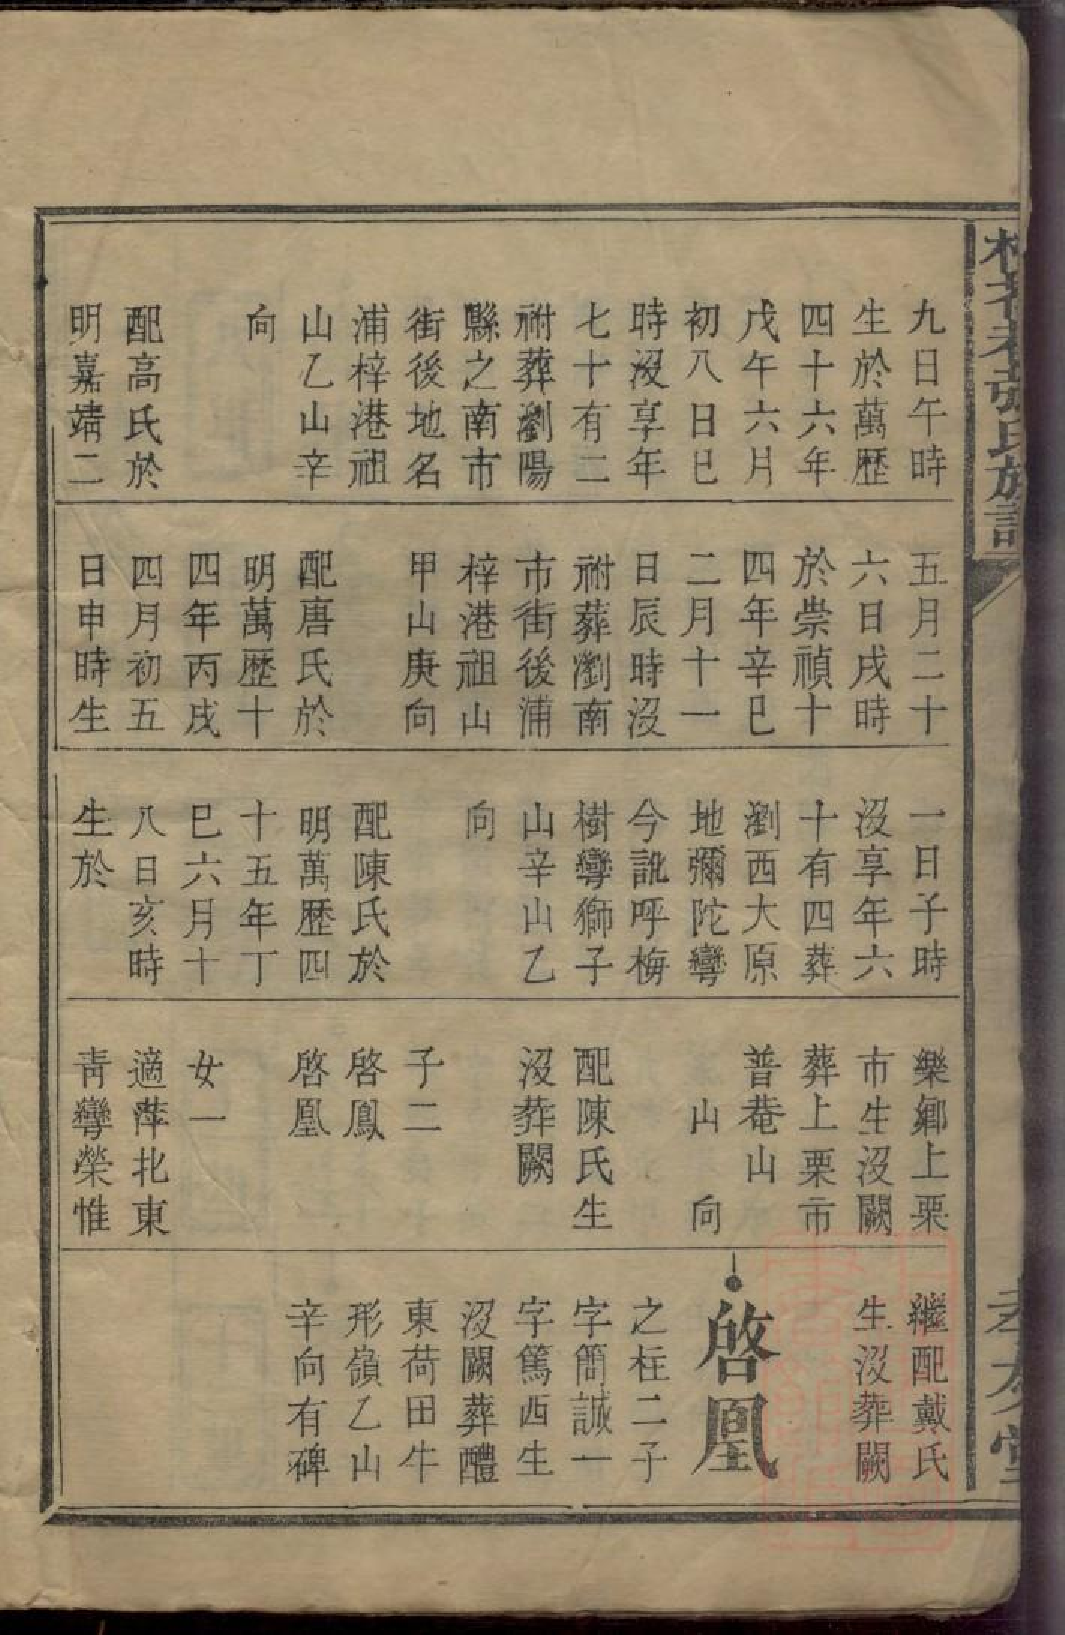 九日午時
生於萬歷
四十六年
戊午六月
初八日巳
時沒享年
七十有二
祔葬瀏陽
縣之南市
街後地名
浦梓港祖
山乙山辛
向
配高氏於
明嘉靖二
五月二十
六日戌時
於崇禎十
四年辛巳
二月十一
日辰時沒
祔葬瀏南
市街後浦
梓港祖山
甲山庚向
配唐氏於
明萬歷十
四年丙戌
四月初五
日申時生
一日子時
沒享年六
十有四葬
瀏西大原
地彌陀彎
今訛呼梅
樹彎獅子
山辛山乙
向
配陳氏於
明萬歷四
十五年丁
巳六月十
八日亥時
生於
樂鄉上栗
市生沒闕
葬上栗市
普菴山
山 向
配陳氏生
沒葬闕
子二
啓鳳
啓凰
女一
適萍北東
靑彎榮惟
繼配戴氏
生沒葬闕
啓凰
之柱二子
字簡誠一
字篤西生
沒闕葬醴
東荷田牛
形嶺乙山
辛向有碑
氏族譜
孝友堂